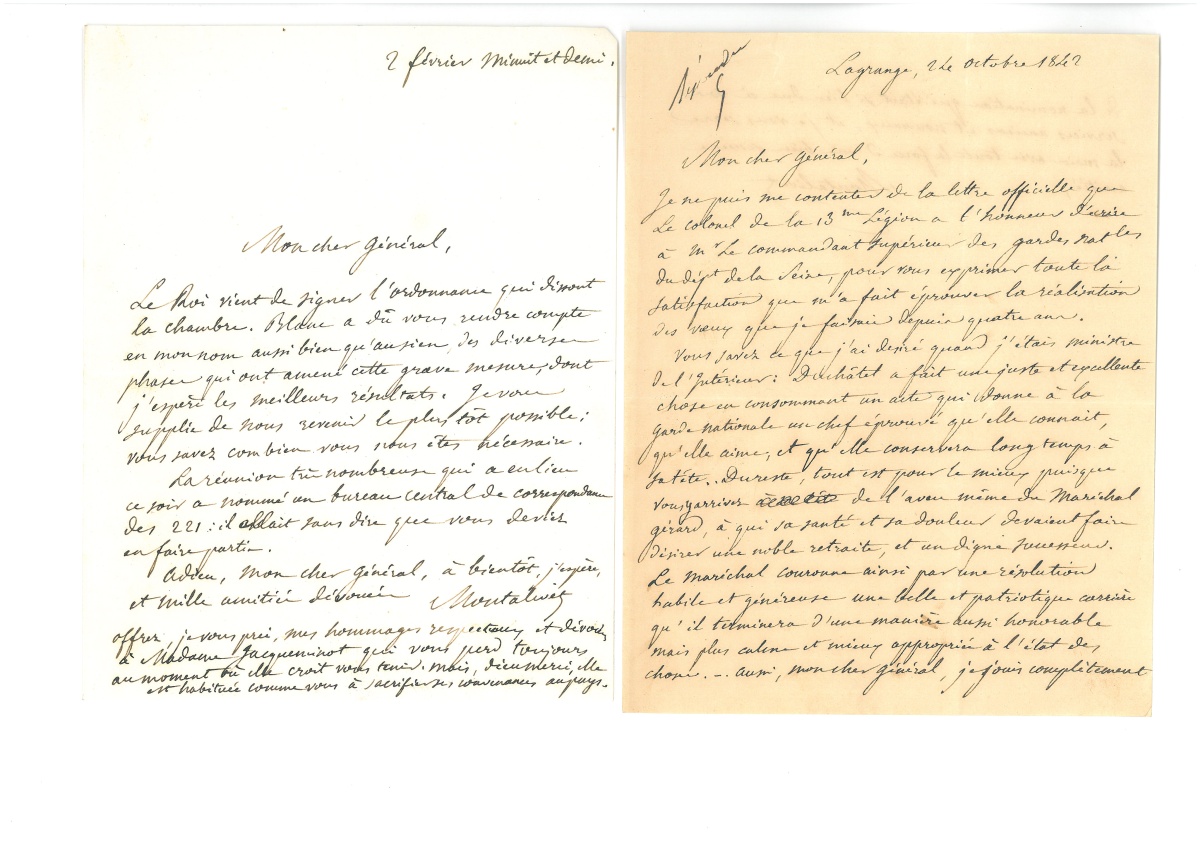 2 février Minuit et demi.
Mon cher Général,
Le Roi vient de signer l'ordonnance qui dissout
la chambre. Blanc a dû vous rendre compte
en mon nom aussi bien qu'au sien, des diverses
phases qui ont amené cette grave mesure, dont
j'espère les meilleurs résultats. Je vous
supplie de nous revenir le plus tôt possible;
vous savez combien vous nous êtes nécessaire.
La réunion très nombreuse qui a eu lieu
ce soir a nommé un bureau central de correspondance
des 221: il allait sans dire que vous deviez
en faire partie.
Adieu, mon cher Général, à bientôt, j'espère,
et mille amitiés dévouées Montalivet
offrez, je vous prie, mes hommages respectueux et dévoués
à Madame Jacqueminot qui vous perd toujours
au moment où elle croit vous tenir. Mais, dieu merci, elle
est habituée comme vous à sacrifier ses convenances au pays.
Lagrange, 24 octobre 1842
Mon cher Général,
Je ne puis me contenter de la lettre officielle que
Le colonel de la 13me Légion a l'honneur d'écrire
à Mr Le commandant supérieur des gardes natles
du dépt de la Seine, pour vous exprimer toute la
satisfaction que m'a fait éprouver la réalisation
des vœux que je faisais depuis quatre ans.
Vous savez ce que j'ai désiré quand j'étais ministre
de l'Intérieur: Duchâtel a fait une juste et excellente
chose en consommant un acte qui donne à la
garde nationale un chef éprouvé qu'elle connait,
qu'elle aime, et qu'elle conservera long temps à
sa tête.. Du reste, tout est pour le mieux puisque
vous y arrivez de l'aveu même du Maréchal
gérard, à qui sa santé et sa douleur devaient faire
désirer une noble retraite, et un digne successeur.
Le Maréchal couronne ainsi par une résolution
habile et généreuse une belle et patriotique carrière
qu'il terminera d'une manière aussi honorable
mais plus calme et mieux appropriée à l'état des
choses. _. aussi, mon cher général, je jouis complètement